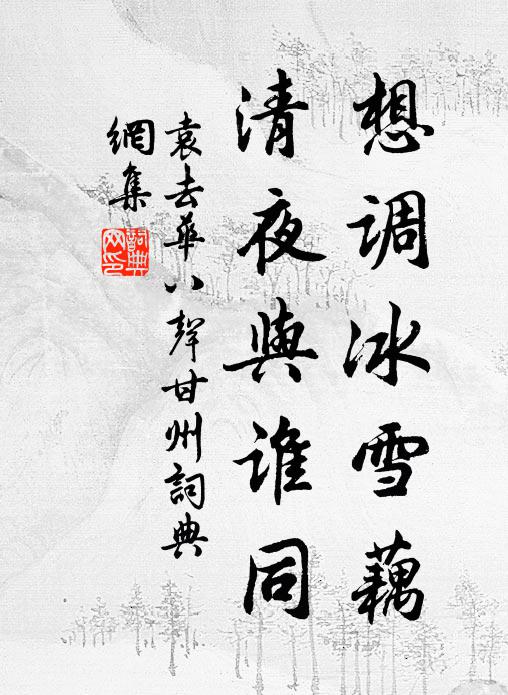 想调冰雪藕
清夜與谁同
袁去華八聲甘州詞典
網集
詞典网印